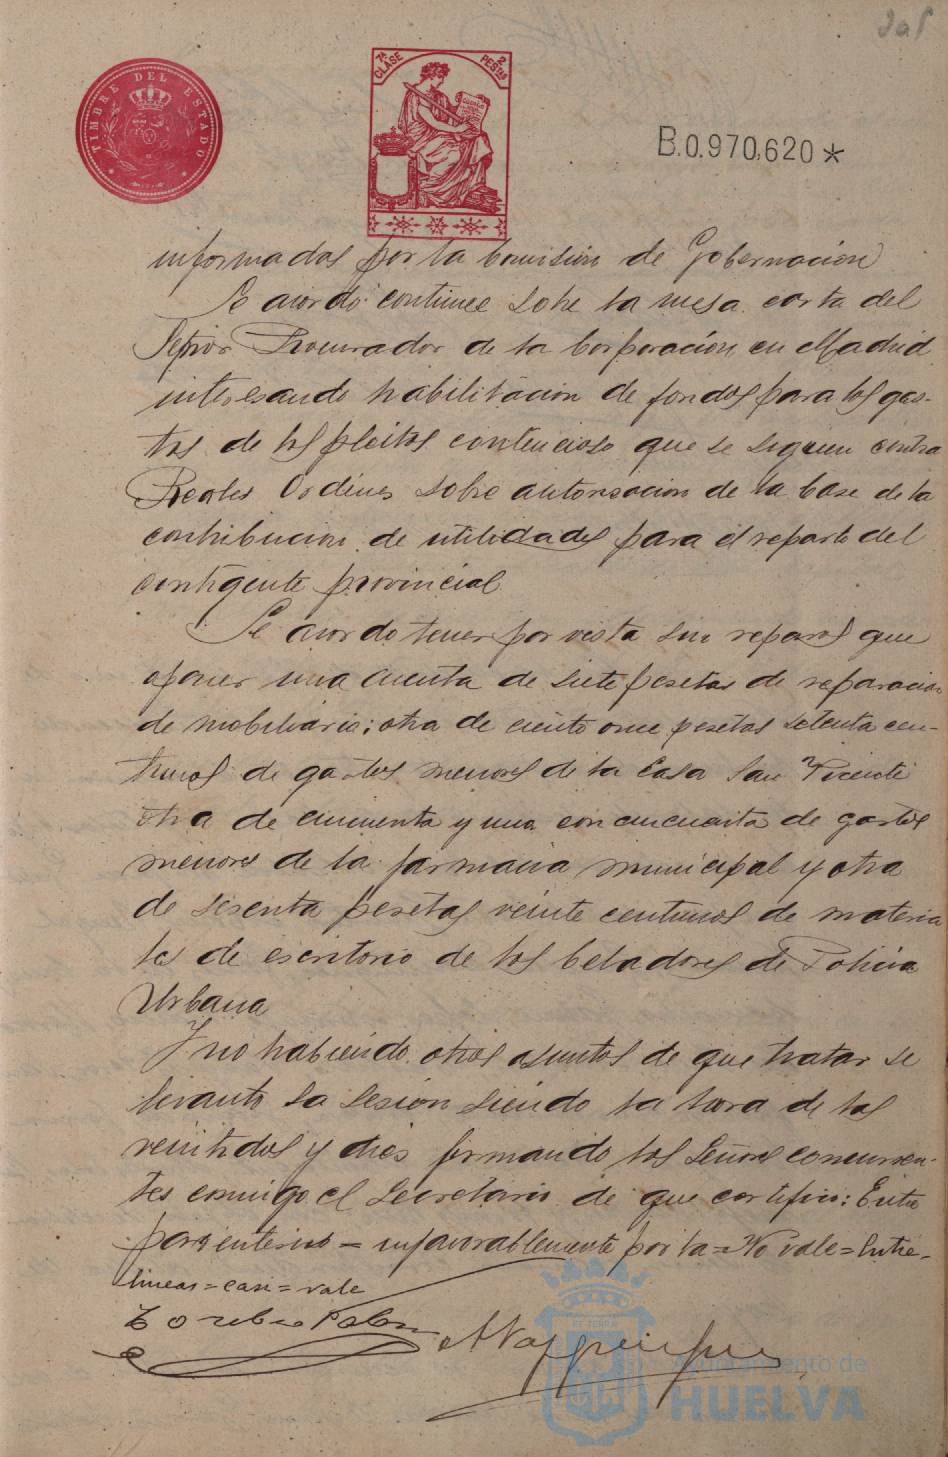 TIMBRE DEL ESTADO
7ª CLASE
2 PESTAS
B.0.970,620*
informados por la Comisión de Gobernación
Se acordó continue sobre la mesa carta del
Señor Procurador de la Corporación en Madrid
interesando habilitación de fondos para los gas-
tos de los pleitos contencioso que se siguen contra
Reales Ordenes sobre autorisacion de la base de la
contribucion de utilidades para el reparto del
contigente provincial
Se acordo tener por vista sin reparos que
oponer una cuenta de siete pesetas de reparacion
de mobiliario; otra de ciento once pesetas setenta cen-
timos de gastos menores de la Casa San Vicente
otra de cincuenta y una con cincuenta de gastos
menores de la farmacia municipal y otra
de sesenta pesetas veinte centimos de materia
les de escritorio de los beladores de Policia
Urbana
Y no habiendo otros asuntos de que tratar se
levanto la sesion siendo la hora de las
veintidos y diez firmando los Señores concurren-
tes conmigo el Secretario de que certifico: Entre
parentesis = infavorablemente por la = No vale = Entre-
lineas = casi = vale
Ayuntamiento de
HUELVA